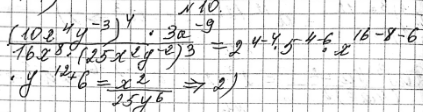 №10.
(10x⁴y⁻³)⁴ · 3a⁻⁹
16x⁸·(25x²y⁻²)³ = 2⁴⁻⁴·5⁴⁻⁶·x¹⁶⁻⁸⁻⁶
·y⁻¹²⁺⁶ = x²/25y⁶ ⇒ 2)